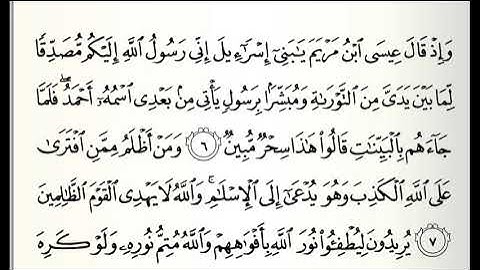 وَإِذۡ قَالَ عِيسَى ٱبۡنُ مَرۡيَمَ يَٰبَنِيٓ إِسۡرَٰٓءِيلَ إِنِّي رَسُولُ ٱللَّهِ إِلَيۡكُم مُّصَدِّقٗا
لِّمَا بَيۡنَ يَدَيَّ مِنَ ٱلتَّوۡرَىٰةِ وَمُبَشِّرَۢا بِرَسُولٖ يَأۡتِي مِنۢ بَعۡدِي ٱسۡمُهُۥٓ أَحۡمَدُۖ فَلَمَّا
جَآءَهُم بِٱلۡبَيِّنَٰتِ قَالُواْ هَٰذَا سِحۡرٞ مُّبِينٞ ٦ وَمَنۡ أَظۡلَمُ مِمَّنِ ٱفۡتَرَىٰ
عَلَى ٱللَّهِ ٱلۡكَذِبَ وَهُوَ يُدۡعَىٰٓ إِلَى ٱلۡإِسۡلَٰمِۚ وَٱللَّهُ لَا يَهۡدِي ٱلۡقَوۡمَ ٱلظَّٰلِمِينَ
٧ يُرِيدُونَ لِيُطۡفِـُٔواْ نُورَ ٱللَّهِ بِأَفۡوَٰهِهِمۡ وَٱللَّهُ مُتِمُّ نُورِهِۦ وَلَوۡ كَرِهَ